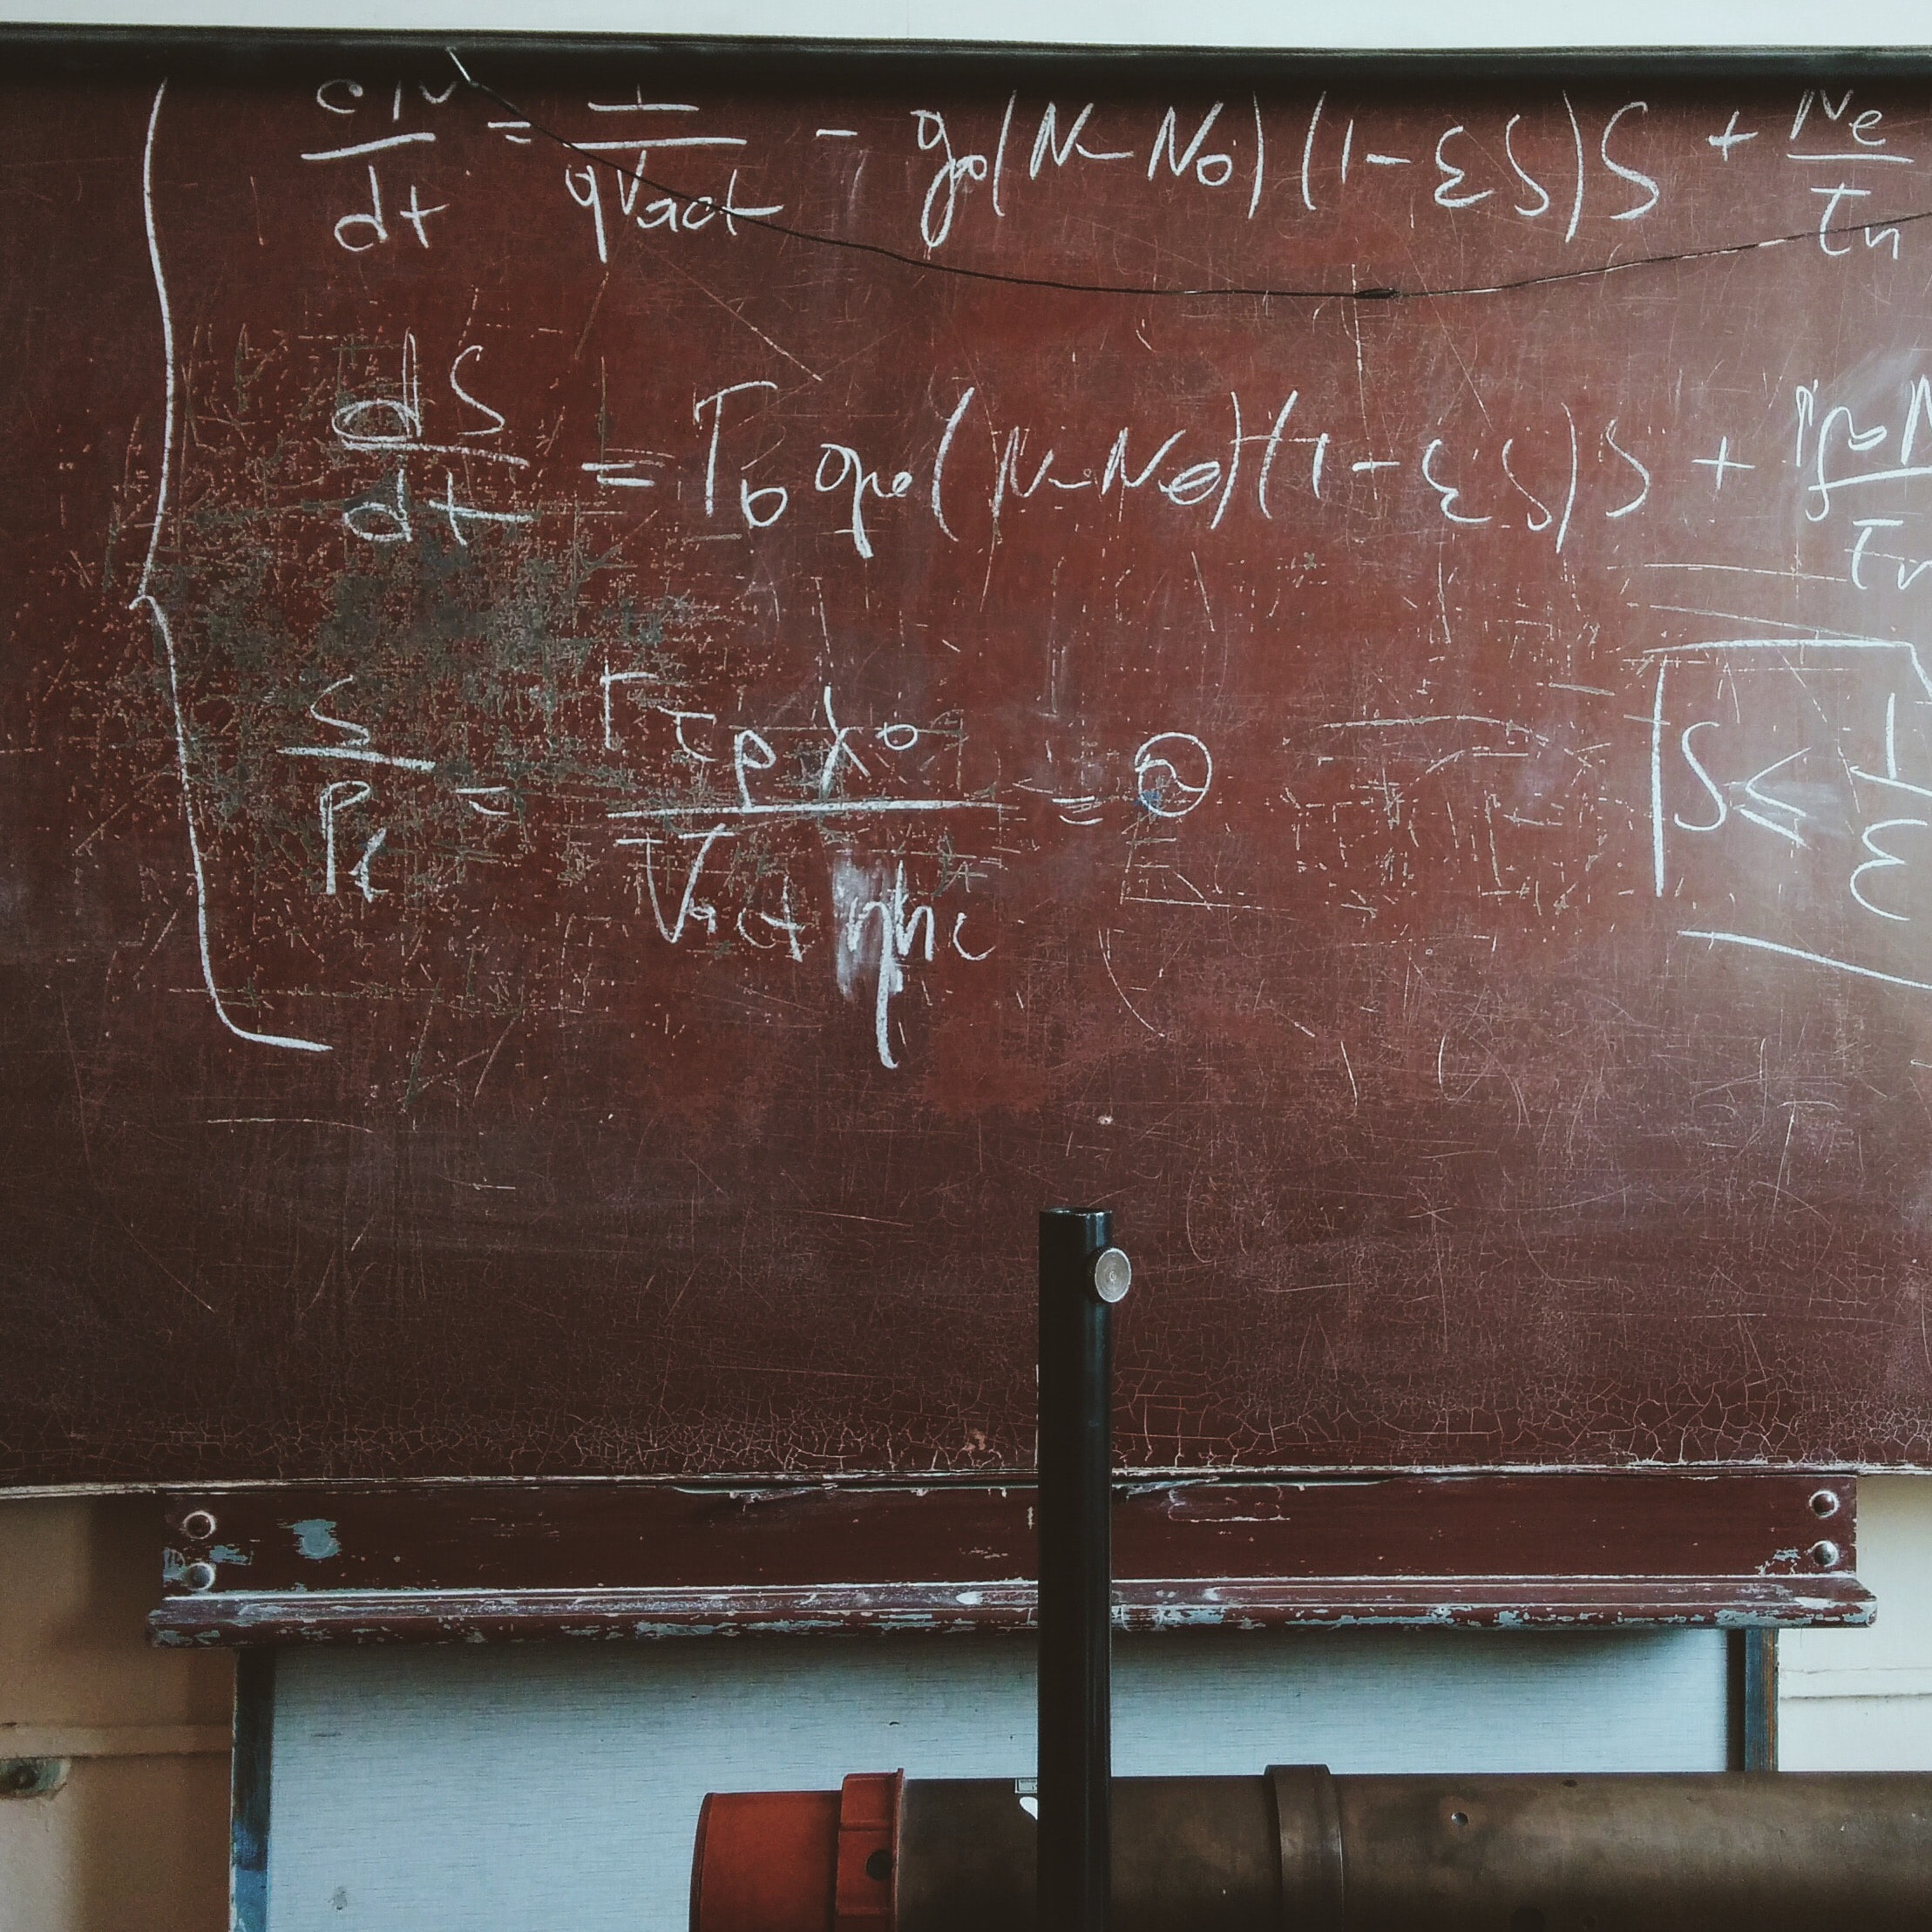 dN/dt = I/qVact - g0(N-N0)(1-εS)S + Ne/τn
dS/dt = Γ0 g0(N-N0)(1-εS)S +
S/Pf = Γτpλ0/Vact ηhc = ϑ
S ≤ 1/ε